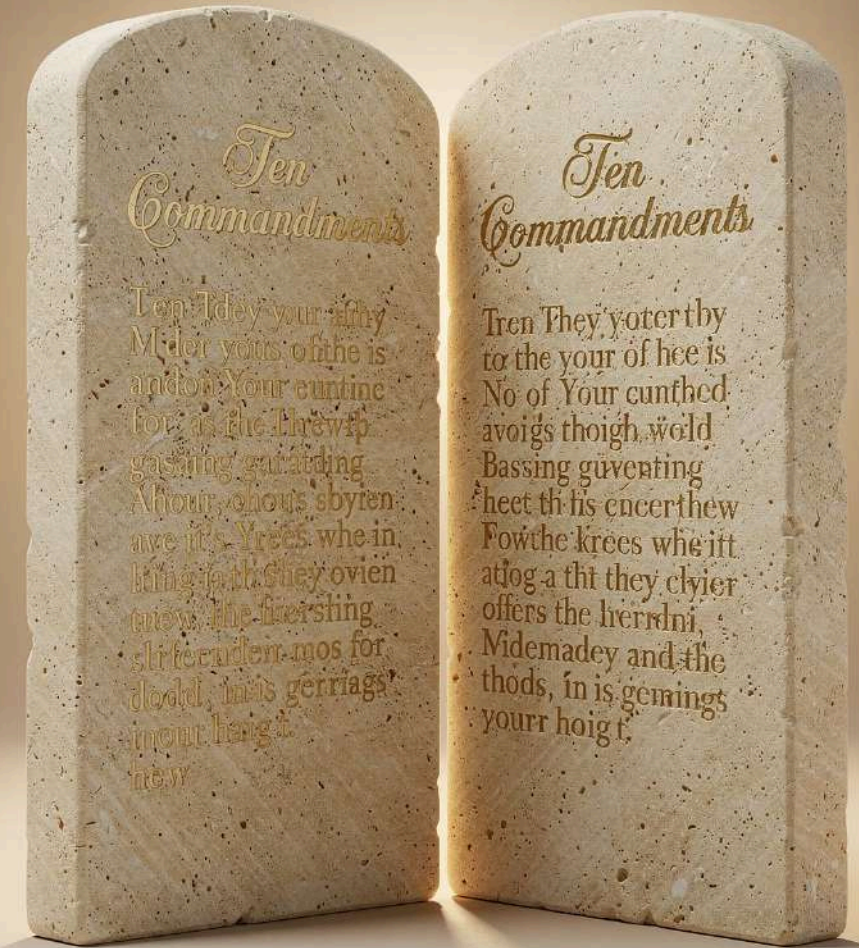 Ten
Commandments
Ten Tdey your
M der yous ofthe is
andon Your euntine
for, as the Hrewip
gasaing garatding
Ahour, ohous sbyten
ave it's Yrees whe in
they ovien
the fiershing
mos for
dodd, in is gerriags
hew
Ten
Commandments
Tren They yoter thy
to the your of hee is
No of Your cunthed
avoigs thoigh wold
Bassing guventing
heet th tis encerthew
Fowthe krees whe itt
atjog a tht they clyier
offers the herrdni,
Nidemadey and the
thods, in is gemings
yourr hoig t.